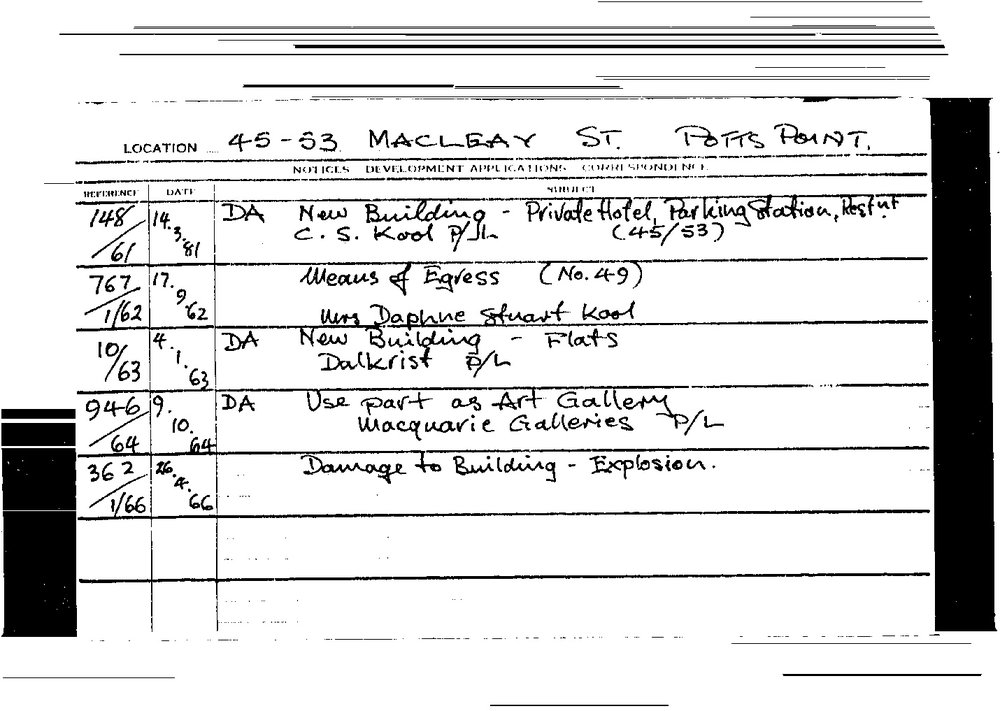 LOCATION 45-53 MACLEAY ST. POTTS POINT.
NOTICES DEVELOPMENT APPLICATIONS CORRESPONDENCE
REFERENCE DATE SUBJECT
148/61 14.3.81 DA New Building - Private Hotel, Parking Station, Rest'nt
C. S. Kool P/L (45/53)
767/1/62 17.9.62 Means of Egress (No. 49)
Mrs Daphne Stuart Kool
10/63 4.1.63 DA New Building - Flats
Dalkrist P/L
946/64 9.10.64 DA Use part as Art Gallery
Macquarie Galleries P/L
362/1/66 26.4.66 Damage to Building - Explosion.